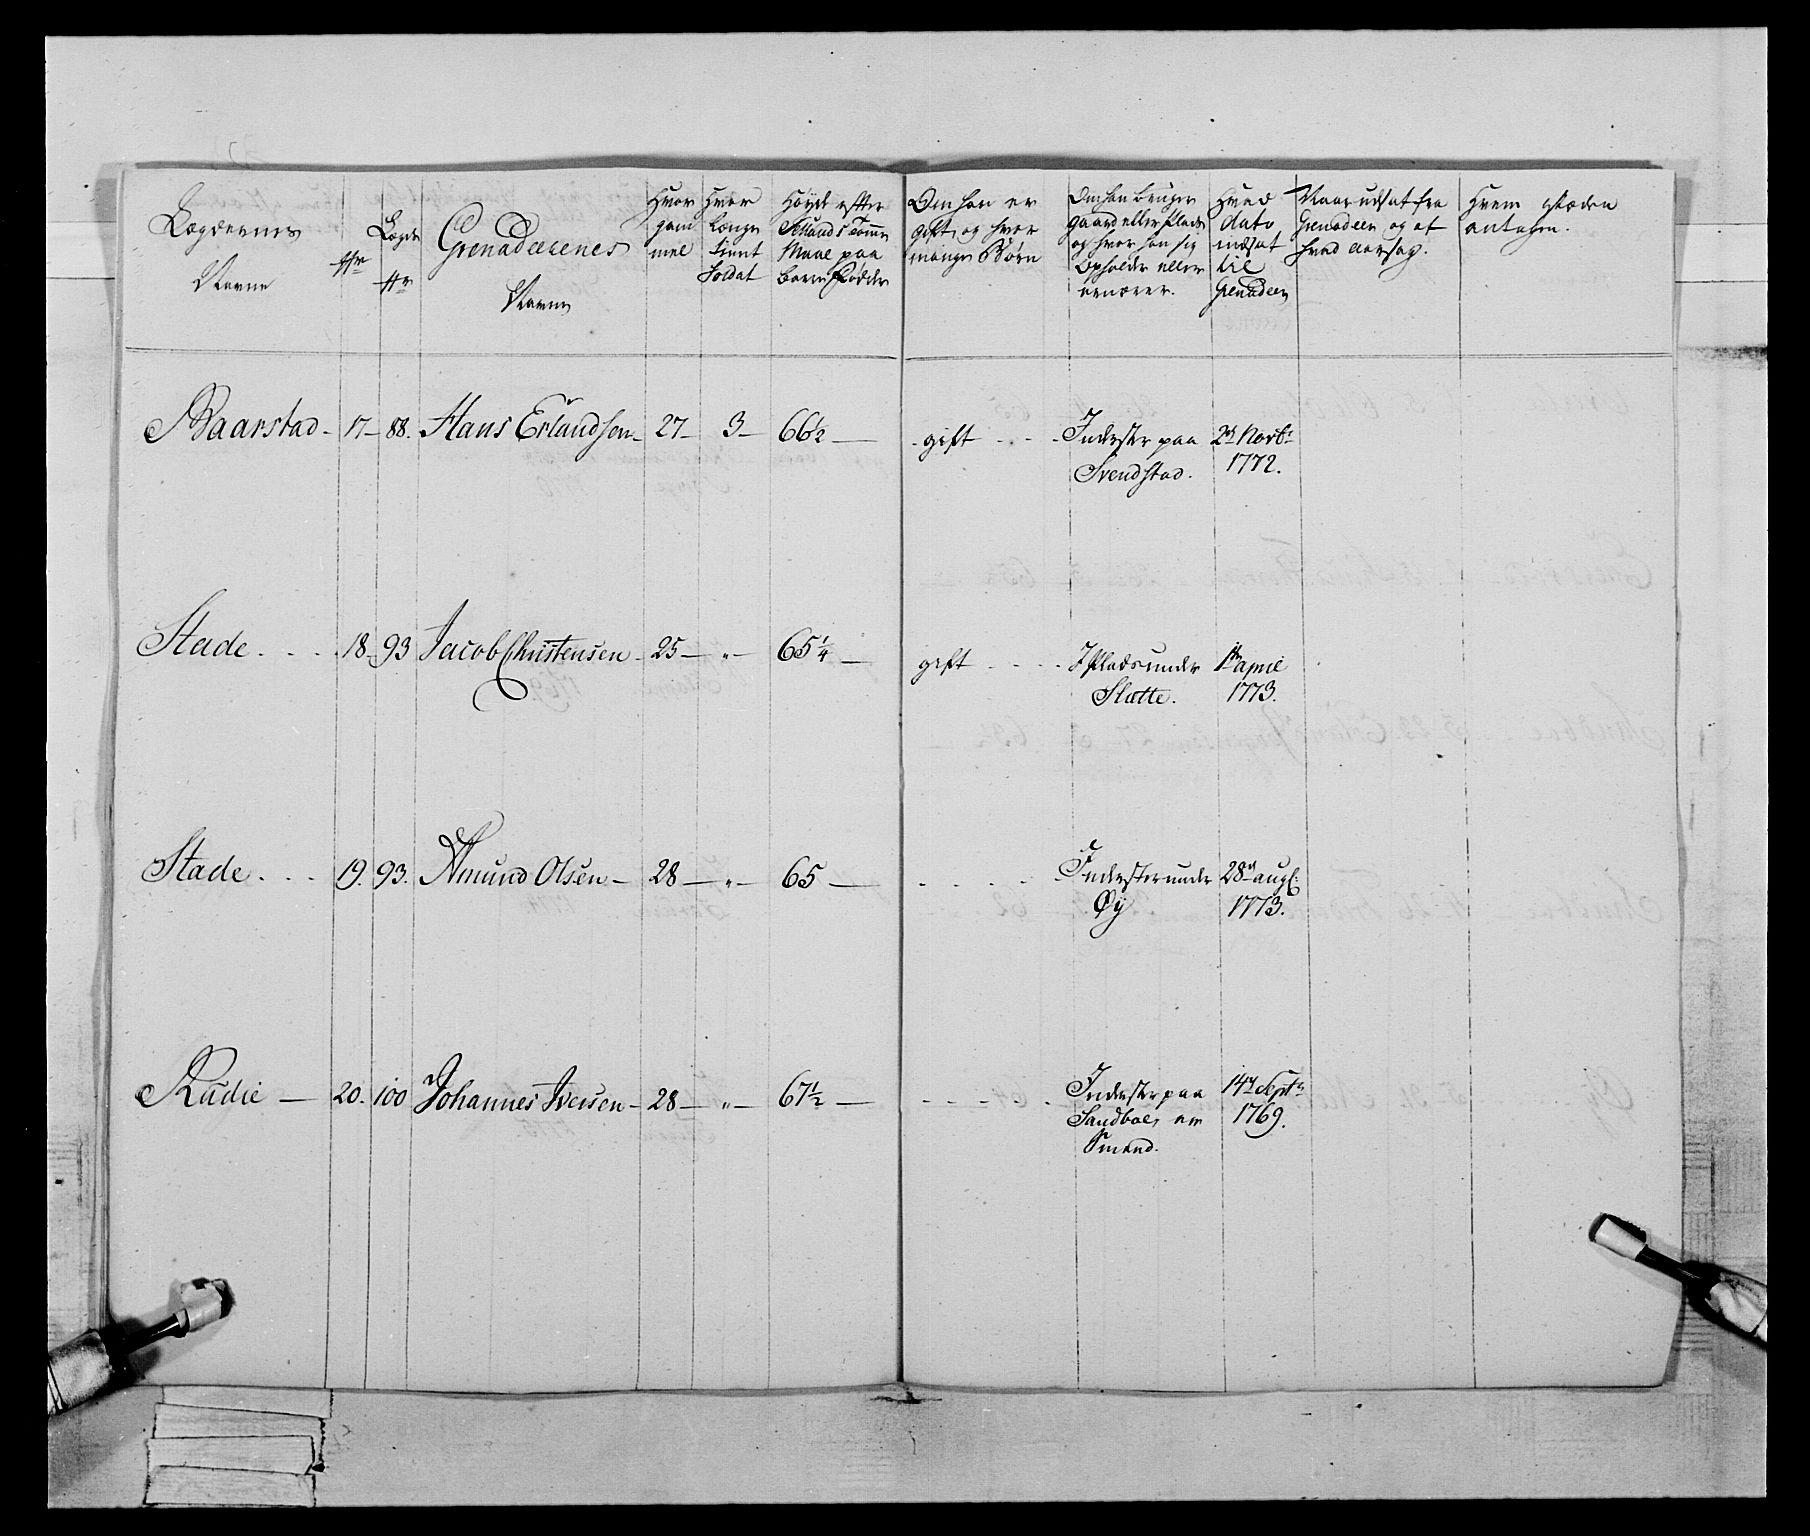 Lægdernes
Navne
No
Lægde
No
Grenadeerenes
Navne
Hvor
gam
mel
Hvor
Længe
tient
Soldat
Høyde efter
Sællands Tomme
Maal paa
bare Fødder
Om han er
gift, og hvor
mange Børn
Om han bruger
gaard eller Plads
og hvor han sig
opholder eller
ernærer.
Hvad
dato
indsat
til
Grenadeer
Naar udsat fra
Grenadeer og af
hvad aarsag.
Hvem i Stæden
antagen.
Baarstad - 17 - 88. Hans Erlandsen - 27 - 3 - 66 1/2 — gift - - - Inderste paa 2d Novbr
Svendstad. 1772.
Stade. - - - 18 - 93 Jacob Christensen - 25 - " - 65 1/4 — gift - - - - I Plads under 1te april
Slatte. 1773.
Stade. - - - 19. 93. Amund Olsen - 28 - " - 65 — - - - - Inderste under 28d aug:
Øÿ 1773.
Rudie — 20. 100 Johannes Iversen - 28 - " - 67 1/2 — - - - - Inderste paa 14d Septr
Sandboe, en 1769.
Smand.